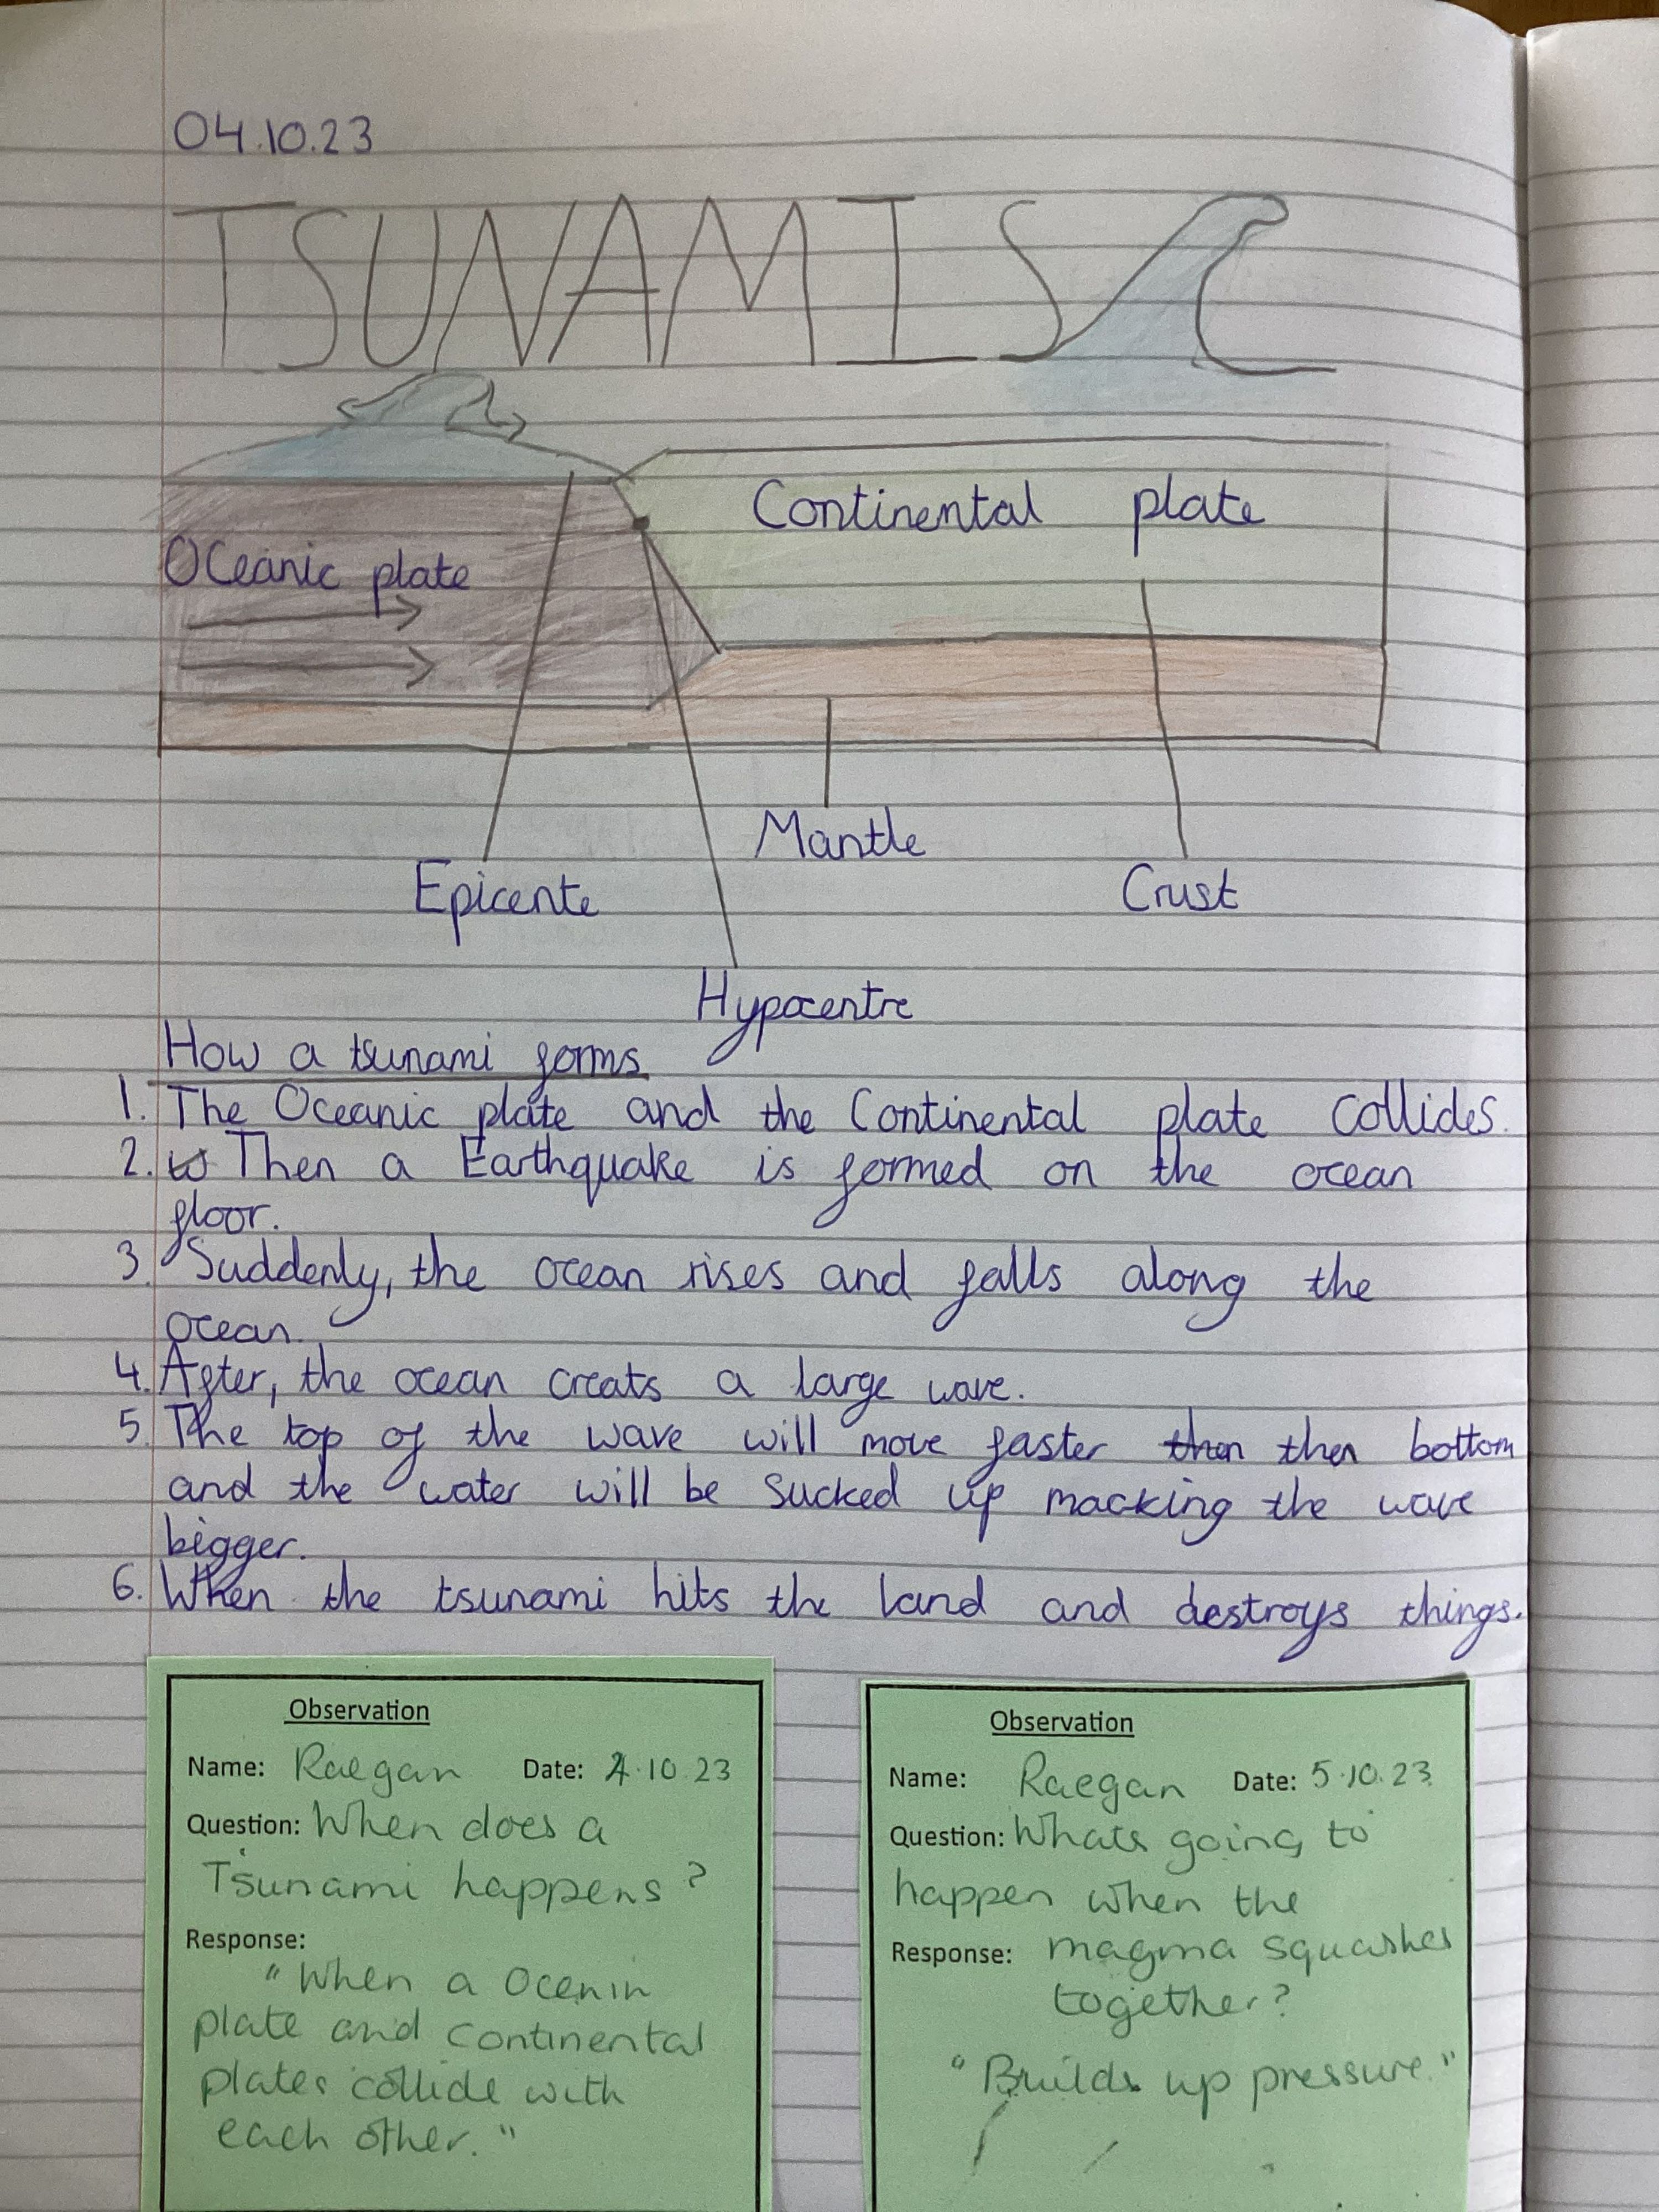 04.10.23
TSUNAMIS
Continental plate
Oceanic plate
Mantle
Epicente
Crust
Hypocentre
How a tsunami forms
1. The Oceanic plate and the Continental plate collides.
2. Then a Earthquake is formed on the ocean
floor.
3. Suddenly, the ocean rises and falls along the
ocean.
4. After, the ocean creats a large wave.
5. The top of the wave will move faster then then bottom
and the water will be sucked up macking the wave
bigger.
6. When the tsunami hits the land and destroys things.
Observation
Name: Raegan Date: 4.10.23
Question: When does a
Tsunami happens?
Response:
"When a Ocenin
plate and continental
plates collide with
each other."
Observation
Name: Raegan Date: 5.10.23
Question: Whats going to
happen when the
Response: magma squashes
together?
"Builds up pressure."